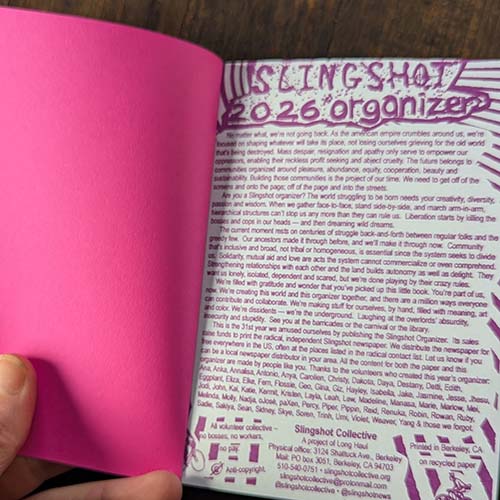 SLINGSHOT
2026 organizer
No matter what, we're not going back. As the american empire crumbles around us, we're
focused on shaping whatever will take its place, not losing ourselves grieving for the old world
that's being destroyed. Mass despair, resignation and apathy only serve to empower our
oppressors, enabling their reckless profit seeking and abject cruelty. The future belongs to
communities organized around pleasure, abundance, equity, cooperation, beauty and
sustainability. Building those communities is the project of our time. We need to get off of the
screens and onto the page; off of the page and into the streets.
Are you a Slingshot organizer? The world struggling to be born needs your creativity, diversity,
passion and wisdom. When we gather face-to-face; stand side-by-side, and march arm-in-arm,
hierarchical structures can't stop us any more than they can rule us. Liberation starts by killing the
bosses and cops in our heads — and then dreaming wild dreams.
The current moment rests on centuries of struggle back-and-forth between regular folks and
greedy few. Our ancestors made it through before, and we'll make it through now. Community
that's inclusive and broad, not tribal or homogeneous, is essential since the system seeks to divide
us. Solidarity, mutual aid and love are acts the system cannot commercialize or even comprehend.
Strengthening relationships with each other and the land builds autonomy as well as delight. They
want us lonely, isolated, dependent and scared, but we're done playing by their crazy rules.
We're filled with gratitude and wonder that you've picked up this little book. You're part of us,
now. We're creating this world and this organizer together, and there are a million ways everyone
can contribute and collaborate. We're making stuff for ourselves, by hand, filled with meaning, art
and color. We're dissidents — we're the underground. Laughing at the overlords' absurdity,
insecurity and stupidity. See you at the barricades or the carnival or the library.
This is the 31st year we amused ourselves by publishing the Slingshot Organizer. Its sales
raise funds to print the radical, independent Slingshot newspaper. We distribute the newspaper for
free everywhere in the US, often at the places listed in the radical contact list. Let us know if you
can be a local newspaper distributor in your area. All the content for both the paper and this
organizer are made by people like you. Thanks to the volunteers who created this year's organizer:
Ana, Anka, Annalisa, Antonio, Anya, Carolien, Christy, Dakota, Daya, Destany, Detti, Edith,
Eggplant, Eliza, Elke, Fern, Flossie, Geo, Gina, Giz, Hayley, Isabella, Jake, Jasmine, Jesse, Jhesu,
Jodi, John, Kai, Katie, Kermit, Kristen, Layla, Leah, Lew, Madeline, Manasa, Marie, Marlow, Mei,
Melinda, Molly, Nadja, oJoat, paXen, Percy, Piper, Pippin, Reid, Renuka, Robin, Rowan, Ruby,
Sadie, Sakiya, Sean, Sidney, Skye, Soren, Trinh, Umi, Violet, Weaver, Yang & those we forgot.
All volunteer collective –
no bosses, no workers,
no pay.
Anti-copyright.
Slingshot Collective
A project of Long Haul
Physical office: 3124 Shattuck Ave., Berkeley
Mail: PO Box 3051, Berkeley, CA 94703
510-540-0751 • slingshotcollective.org
slingshotcollective@protonmail.com
@slingshotcollective • @slingshotnews
Printed in
Berkeley, CA
on recycled paper